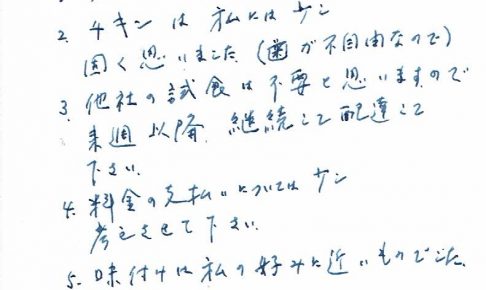 2. チキンは私には少し
固く思いました(歯が不自由なので)
3. 他社の試食は不要と思いますので
来週以降、継続して配達して
下さい.
4. 料金の支払いについては少し
考えさせて下さい.
5. 味付けは私の好みに近いものでした.